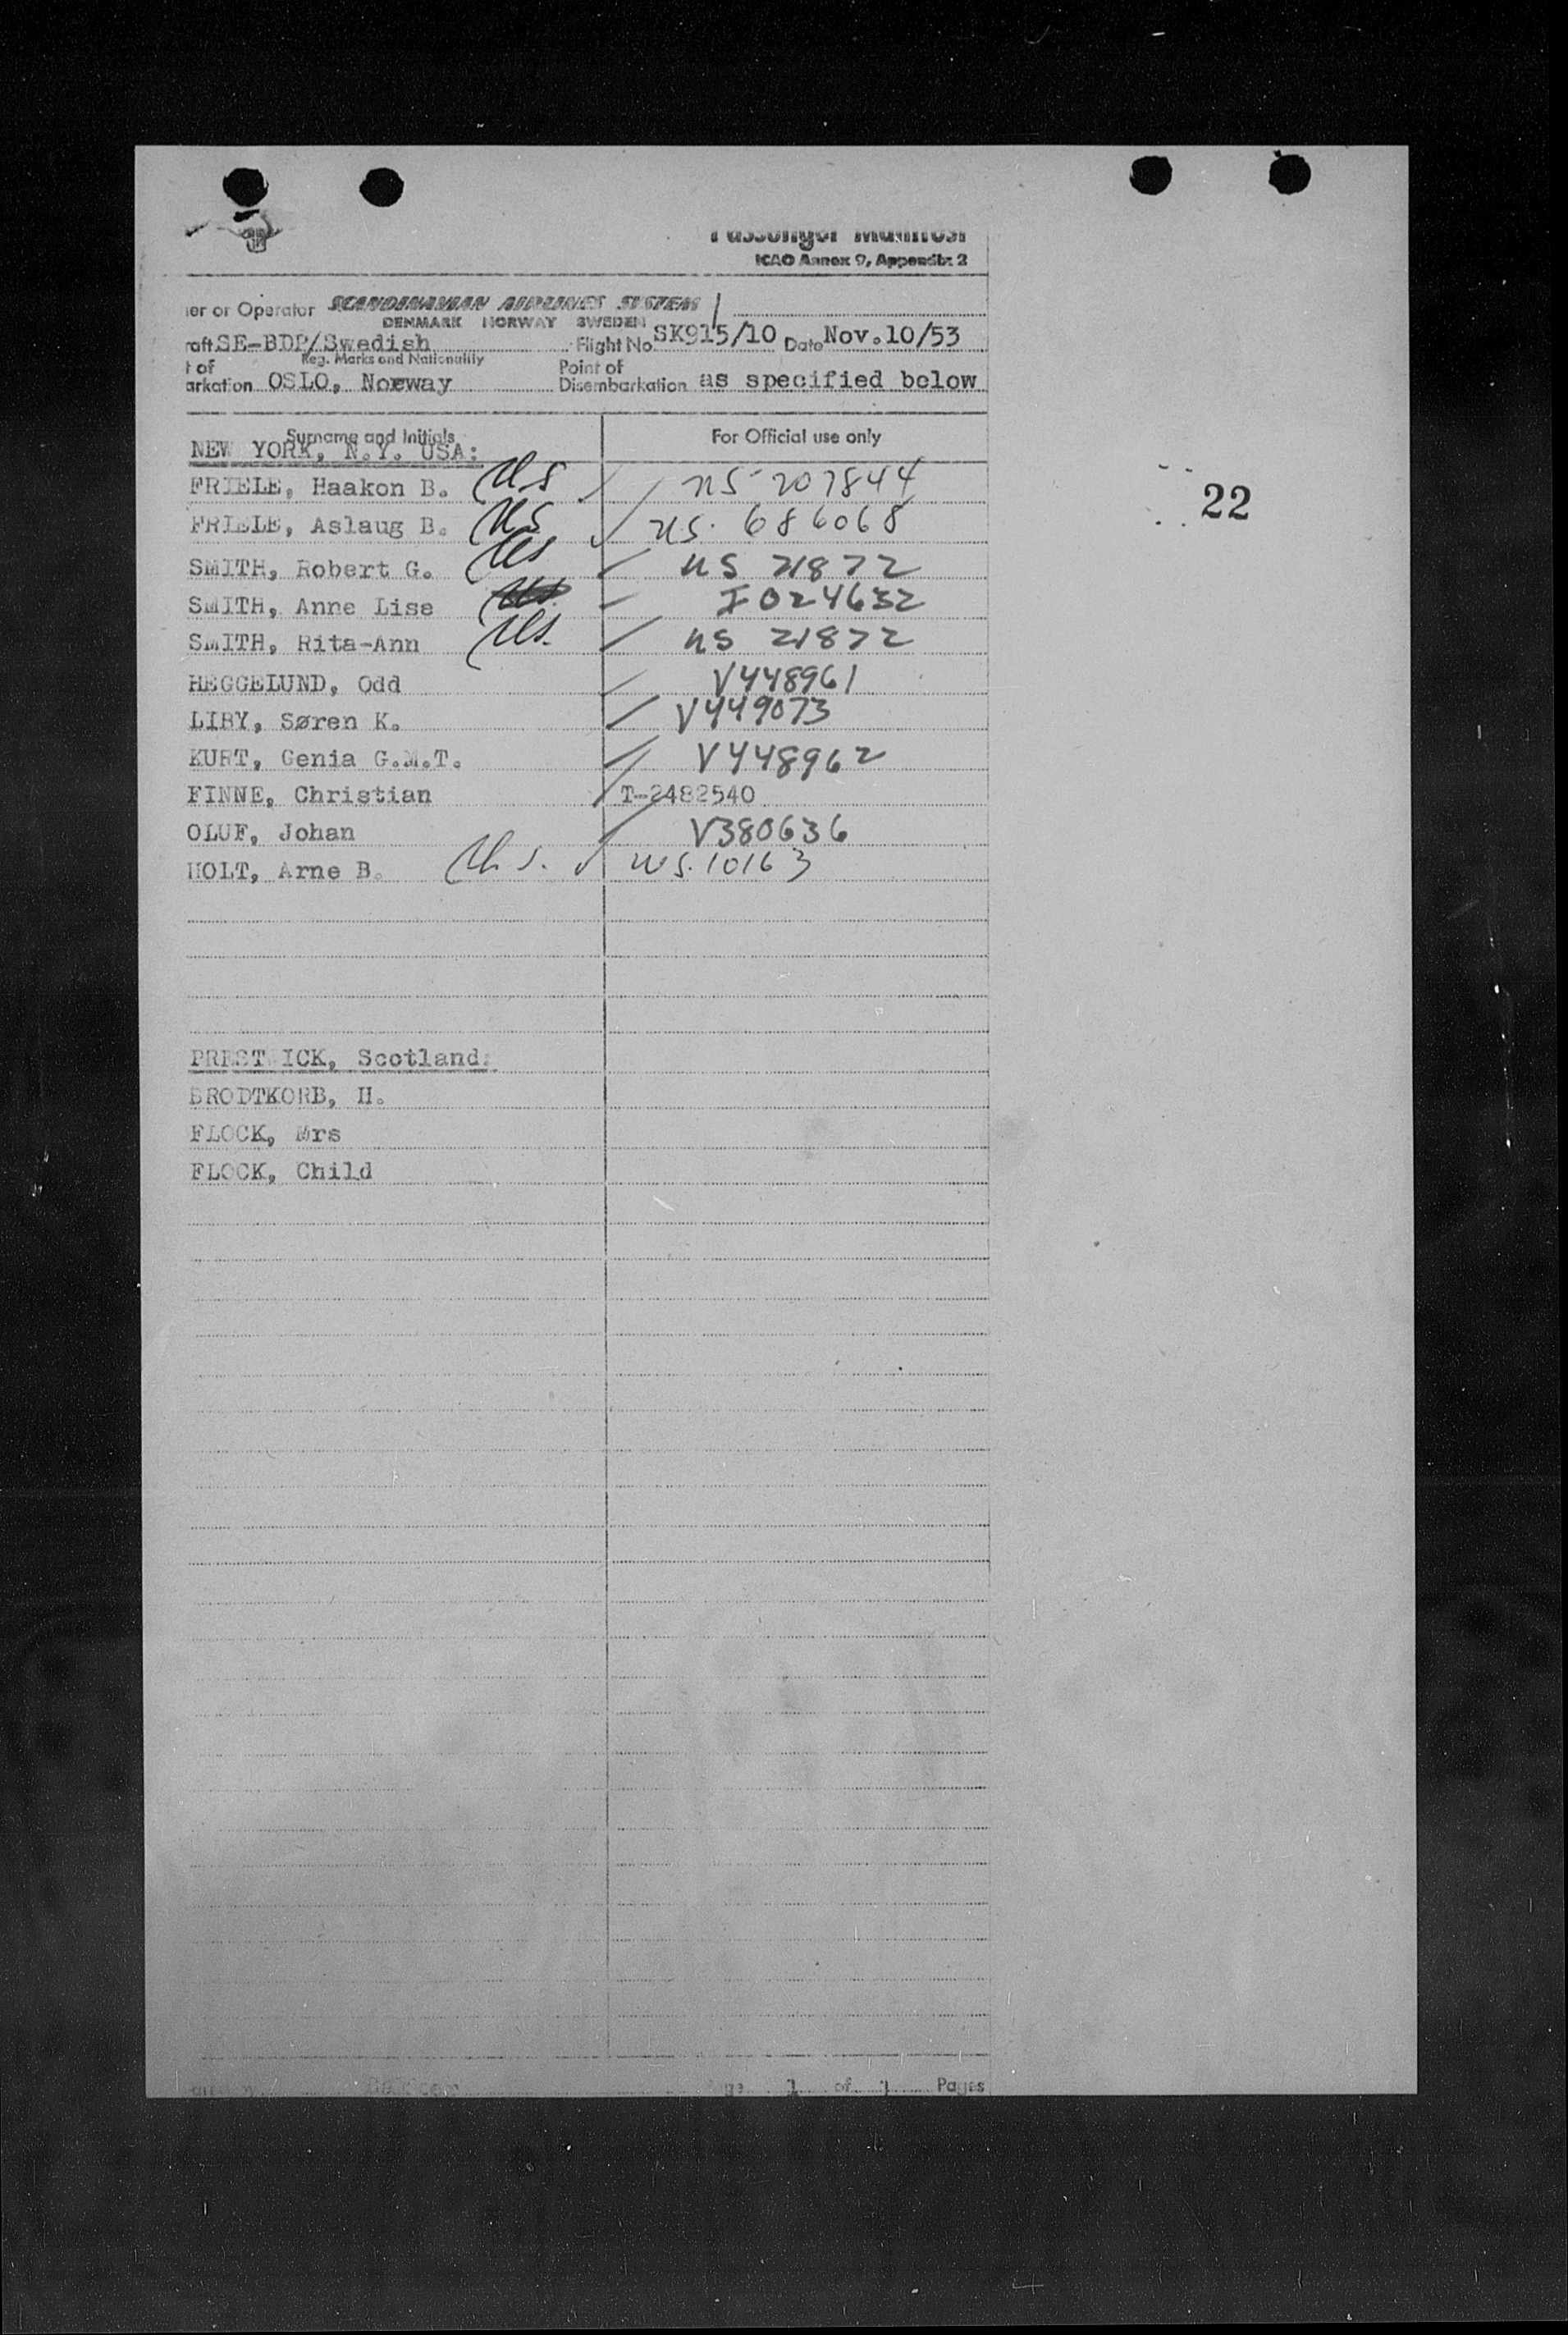 Passenger Manifest
ICAO Annex 9, Appendix 2
er or Operator SCANDINAVIAN AIRLINES SYSTEM
DENMARK NORWAY SWEDEN
raft SE-BDP/Swedish Flight No SK915/10 Date Nov.10/53
Reg. Marks and Nationality
t of Point of
arkation OSLO, Norway Disembarkation as specified below
Surname and Initials For Official use only
NEW YORK, N.Y. USA:
FRIELE, Haakon B. US US 207844
22
FRIELE, Aslaug B. US US. 686068
SMITH, Robert G. US US 21872
SMITH, Anne Lise I024632
SMITH, Rita-Ann US. US 21872
HEGGELUND, Odd V448961
LIBY, Søren K. V449073
KURT, Genia G.M.T. V448962
FINNE, Christian T-2482540
OLUF, Johan V380636
HOLT, Arne B. U.S. US.10163
PRESTWICK, Scotland:
BRODTKORB, H.
FLOCK, Mrs
FLOCK, Child
1 of 1 Pages